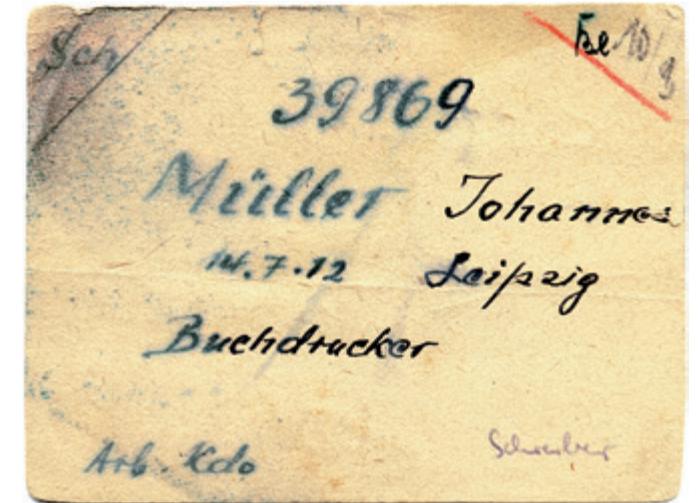 Sch Be 10/9
39869
Müller Johannes
14.7.12 Leipzig
Buchdrucker
Arb. Kdo Schreiber